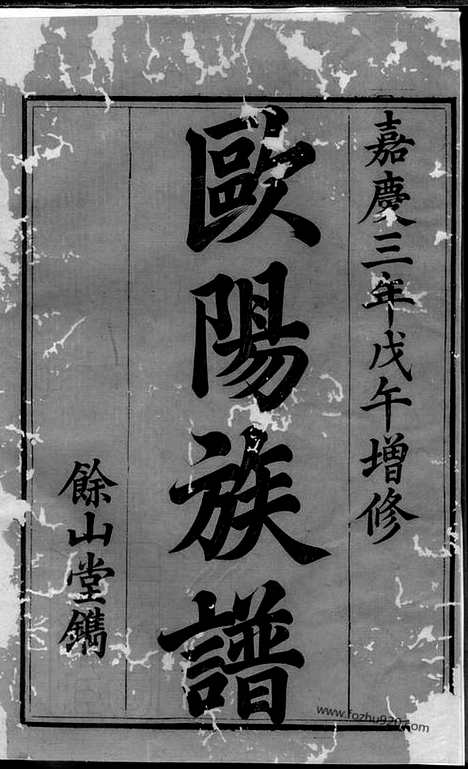 嘉慶三年戊午增修
歐陽族譜
餘山堂鐫
www.fozhu920.com